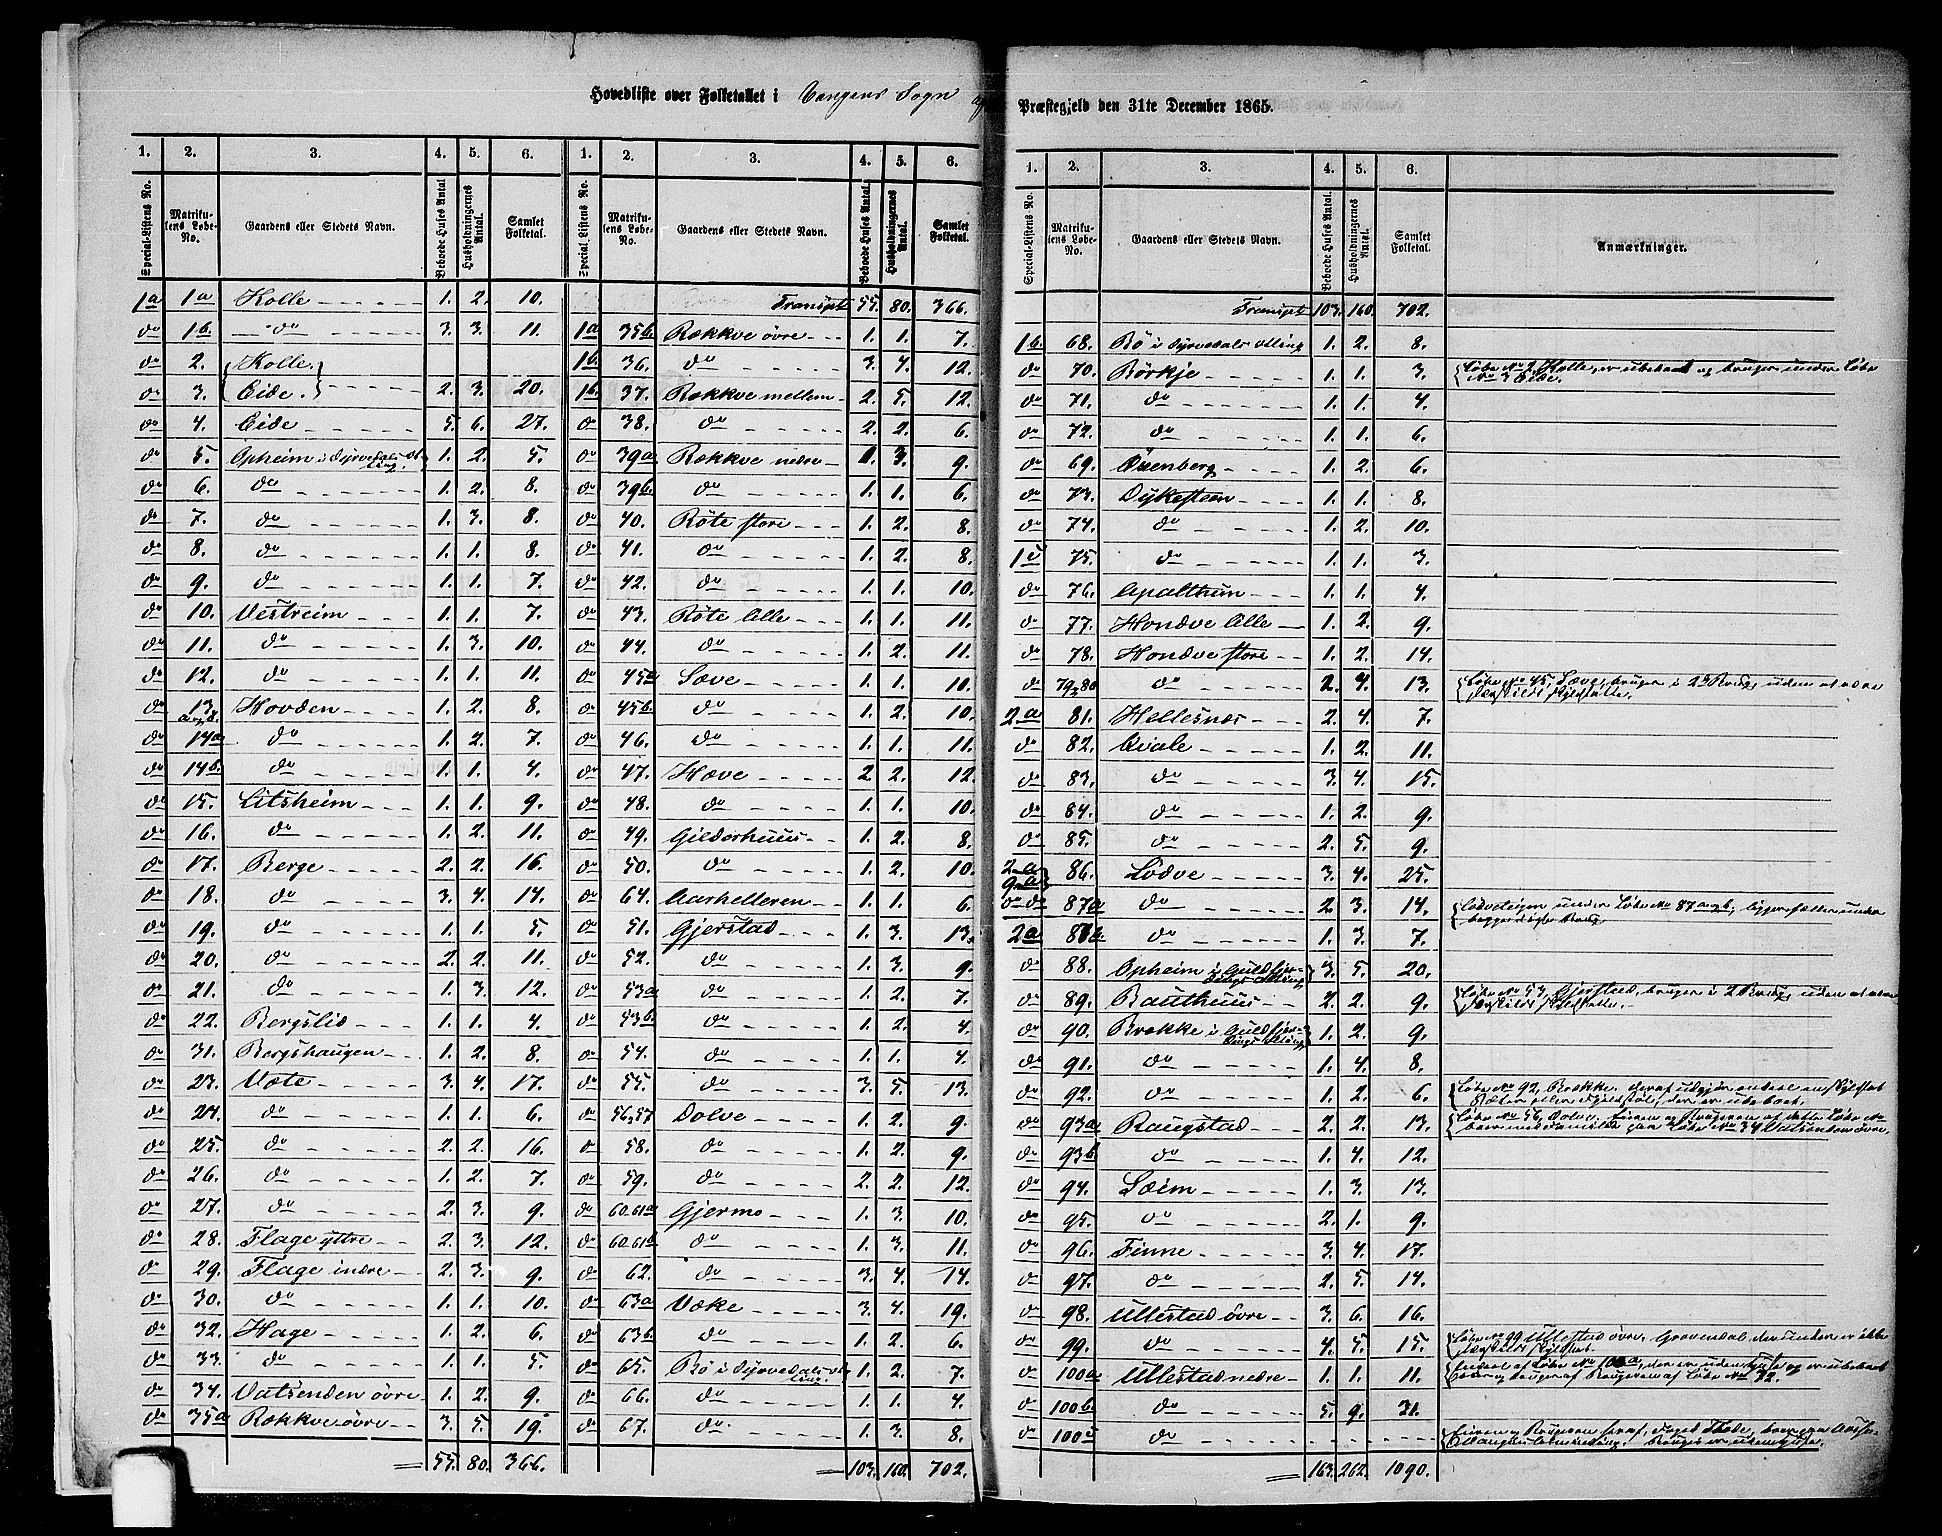 Hovedliste over Folketallet i Vangens Sogn af Præstegjeld den 31te December 1865.
1. 2. 3. 4. 5. 6. 1. 2. 3. 4. 5. 6.
Special-Listens No. Matrikulens Løbe-No. Gaardens eller Stedets Navn. Beboede Huses Antal Husholdningernes Antal. Samlet Folketal. Special Listens No. Matrikulens Løbe-No. Gaardens eller Stedets Navn. Beboede Huses Antal. Husholdningernes Antal. Samlet Folketal.
1a 1a Kolle 1. 2. 10. Transpt 55. 80. 366.
do 1b. do 3. 3. 11. 1a 35b. Rækkve øvre 1. 1. 7.
do 2. Kolle. 1b. 36. do 3. 4. 12.
do 3. Eide. 2. 3. 20. 1b. 37. Rækkve mellem 2. 5. 12.
do 4. Eide 5. 6. 27. do 38. do 2. 2. 6.
do 5. Opheim i Dyrvedals Otting. 1. 2. 5. do 39a Rækkve nedre 1. 3. 9.
do 6. do 1. 2. 8. do 39b. do 1. 1. 6.
do 7. do 1. 3. 8. do 40. Röte store 1. 2. 8.
do 8. do 1. 1. 8. do 41. do 1. 2. 8.
do 9. do 1. 1. 7. do 42. do 1. 1. 10.
do 10. Vestreim 1. 1. 7. do 43. Röte lille 1. 1. 11.
do 11. do 1. 3. 10. do 44. do 1. 2. 11.
do 12. do 1. 1. 11. do 45a Sæve 1. 1. 10.
do 13. a og b. Hovden 1. 2. 8. do 45b. do 1. 2. 10.
do 14a do 1. 2. 7. do 46. do 1. 1. 11.
do 14b. do 1. 1. 4. do 47. Hæve 2. 2. 12.
do 15. Litsheim 1. 1. 9. do 48. do 1. 1. 10.
do 16. do 1. 2. 11. do 49. Gilderhuus 1. 2. 8.
do 17. Berge 2. 2. 16. do 50. do 1. 2. 10.
do 18. do 3. 4. 14. do 64. Aarhelleren 1. 1. 6.
do 19. do 1. 1. 5. do 51. Gjerstad 1. 3. 13.
do 20. do 2. 2. 11. do 52. do 1. 3. 9.
do 21. do 1. 3. 12. do 53a do 1. 2. 7.
do 22. Bergslid 1. 1. 4. do 53b. do 1. 2. 4.
do 31. Bergshaugen 1. 2. 8. do 54. do 1. 1. 4.
do 23. Væte 3. 4. 17. do 55. do 3. 5. 13.
do 24. do 1. 1. 6. do 56,57 Dolve 1. 2. 9.
do 25. do 2. 2. 16. do 58. do 1. 2. 9.
do 26. do 1. 2. 7. do 59. do 2. 2. 12.
do 27. do 2. 3. 9. do 60.61a Gjermo 1. 3. 10.
do 28. Flage yttre 2. 3. 12. do 60.61b do 1. 3. 11.
do 29. Flage indre 2. 3. 9. do 62. do 3. 4. 14.
do 30. do 1. 1. 10. do 63a Væke 3. 4. 19.
do 32. Hage 1. 2. 6. do 63b. do 1. 2. 6.
do 33. do 1. 1. 5. do 65. Bö i Dyrvedals Otting 1. 2. 7.
do 34. Vatsenden øvre 1. 2. 9. do 66. do 1. 1. 4.
do 35a Rækkve øvre 3. 5. 19. do 67. do 1. 3. 8.
55. 80. 366. 103. 160. 702.
1. 2. 3. 4. 5. 6.
Special-Listens No. Matrikulens Løbe-No. Gaardens eller Stedets Navn. Beboede Huses Antal. Husholdningernes Antal. Samlet Folketal. Anmærkninger.
Transpt 103. 160. 702.
1b. 68. Bö i Dyrvedals Otting 1. 2. 8.
do 70. Börkje 1. 1. 3. Löbe No 2 Kolle, er ubeboet og bruges under Löbe No 3 Eide.
do 71. do 1. 1. 4.
do 72. do 1. 1. 6.
do 69. Öxenberg 1. 2. 6.
do 73. Dykesteen 1. 1. 8.
do 74. do 1. 2. 10.
1c 75. do 1. 1. 3.
do 76. Apalthun 1. 1. 4.
do 77. Hondve lille 1. 2. 9.
do 78. Hondve store 1. 2. 14.
do 79,80 do 2. 4. 13. Löbe No 45. Sæve, bruges i 2 Brug, uden at være særskildt skyldsatte.
2a 81. Hellesnæs 2. 4. 7.
do 82. Qvale 1. 2. 11.
do 83. do 3. 4. 15.
do 84. do 1. 2. 9.
do 85. do 2. 5. 9.
2a 9a 86. Lödve 3. 4. 25.
do do 87a do 2. 3. 14. Lödveteigen under Löbe No 87 a og b, ligger fælles under begge disse Brug
2a 87b. do 1. 3. 7.
do 88. Opheim i Guldfjerdings Otting 3. 5. 20.
do 89. Bauthuus 2. 2. 9. Löbe No 53, Gjerstad, bruges i 2 Brug, uden at være særskildt skyldsatte.
do 90. Brække i Guldfjerdings Otting 1. 2. 9.
do 91. do 1. 4. 8.
do 92. do 1. 2. 6. Löbe No 92, Brække.
do 93a Baugstad 2. 2. 13. Löbe No 56, Dolve. No 34 Vatsenden øvre.
do 93b do 1. 4. 12.
do 94. Sæim 1. 3. 13.
do 95. do 2. 1. 9.
do 96. Finne 3. 4. 17.
do 97. do 2. 5. 14.
do 98. Ullestad øvre 3. 6. 16.
do 99. do 4. 5. 15. Löbe No 99 Ullestad øvre. Grovendal derunder er ikke særskildt skyldsat.
do 100a Ullestad nedre 1. 1. 11.
do 100b. do 5. 9. 31.
do 100c do
163. 262. 1090.